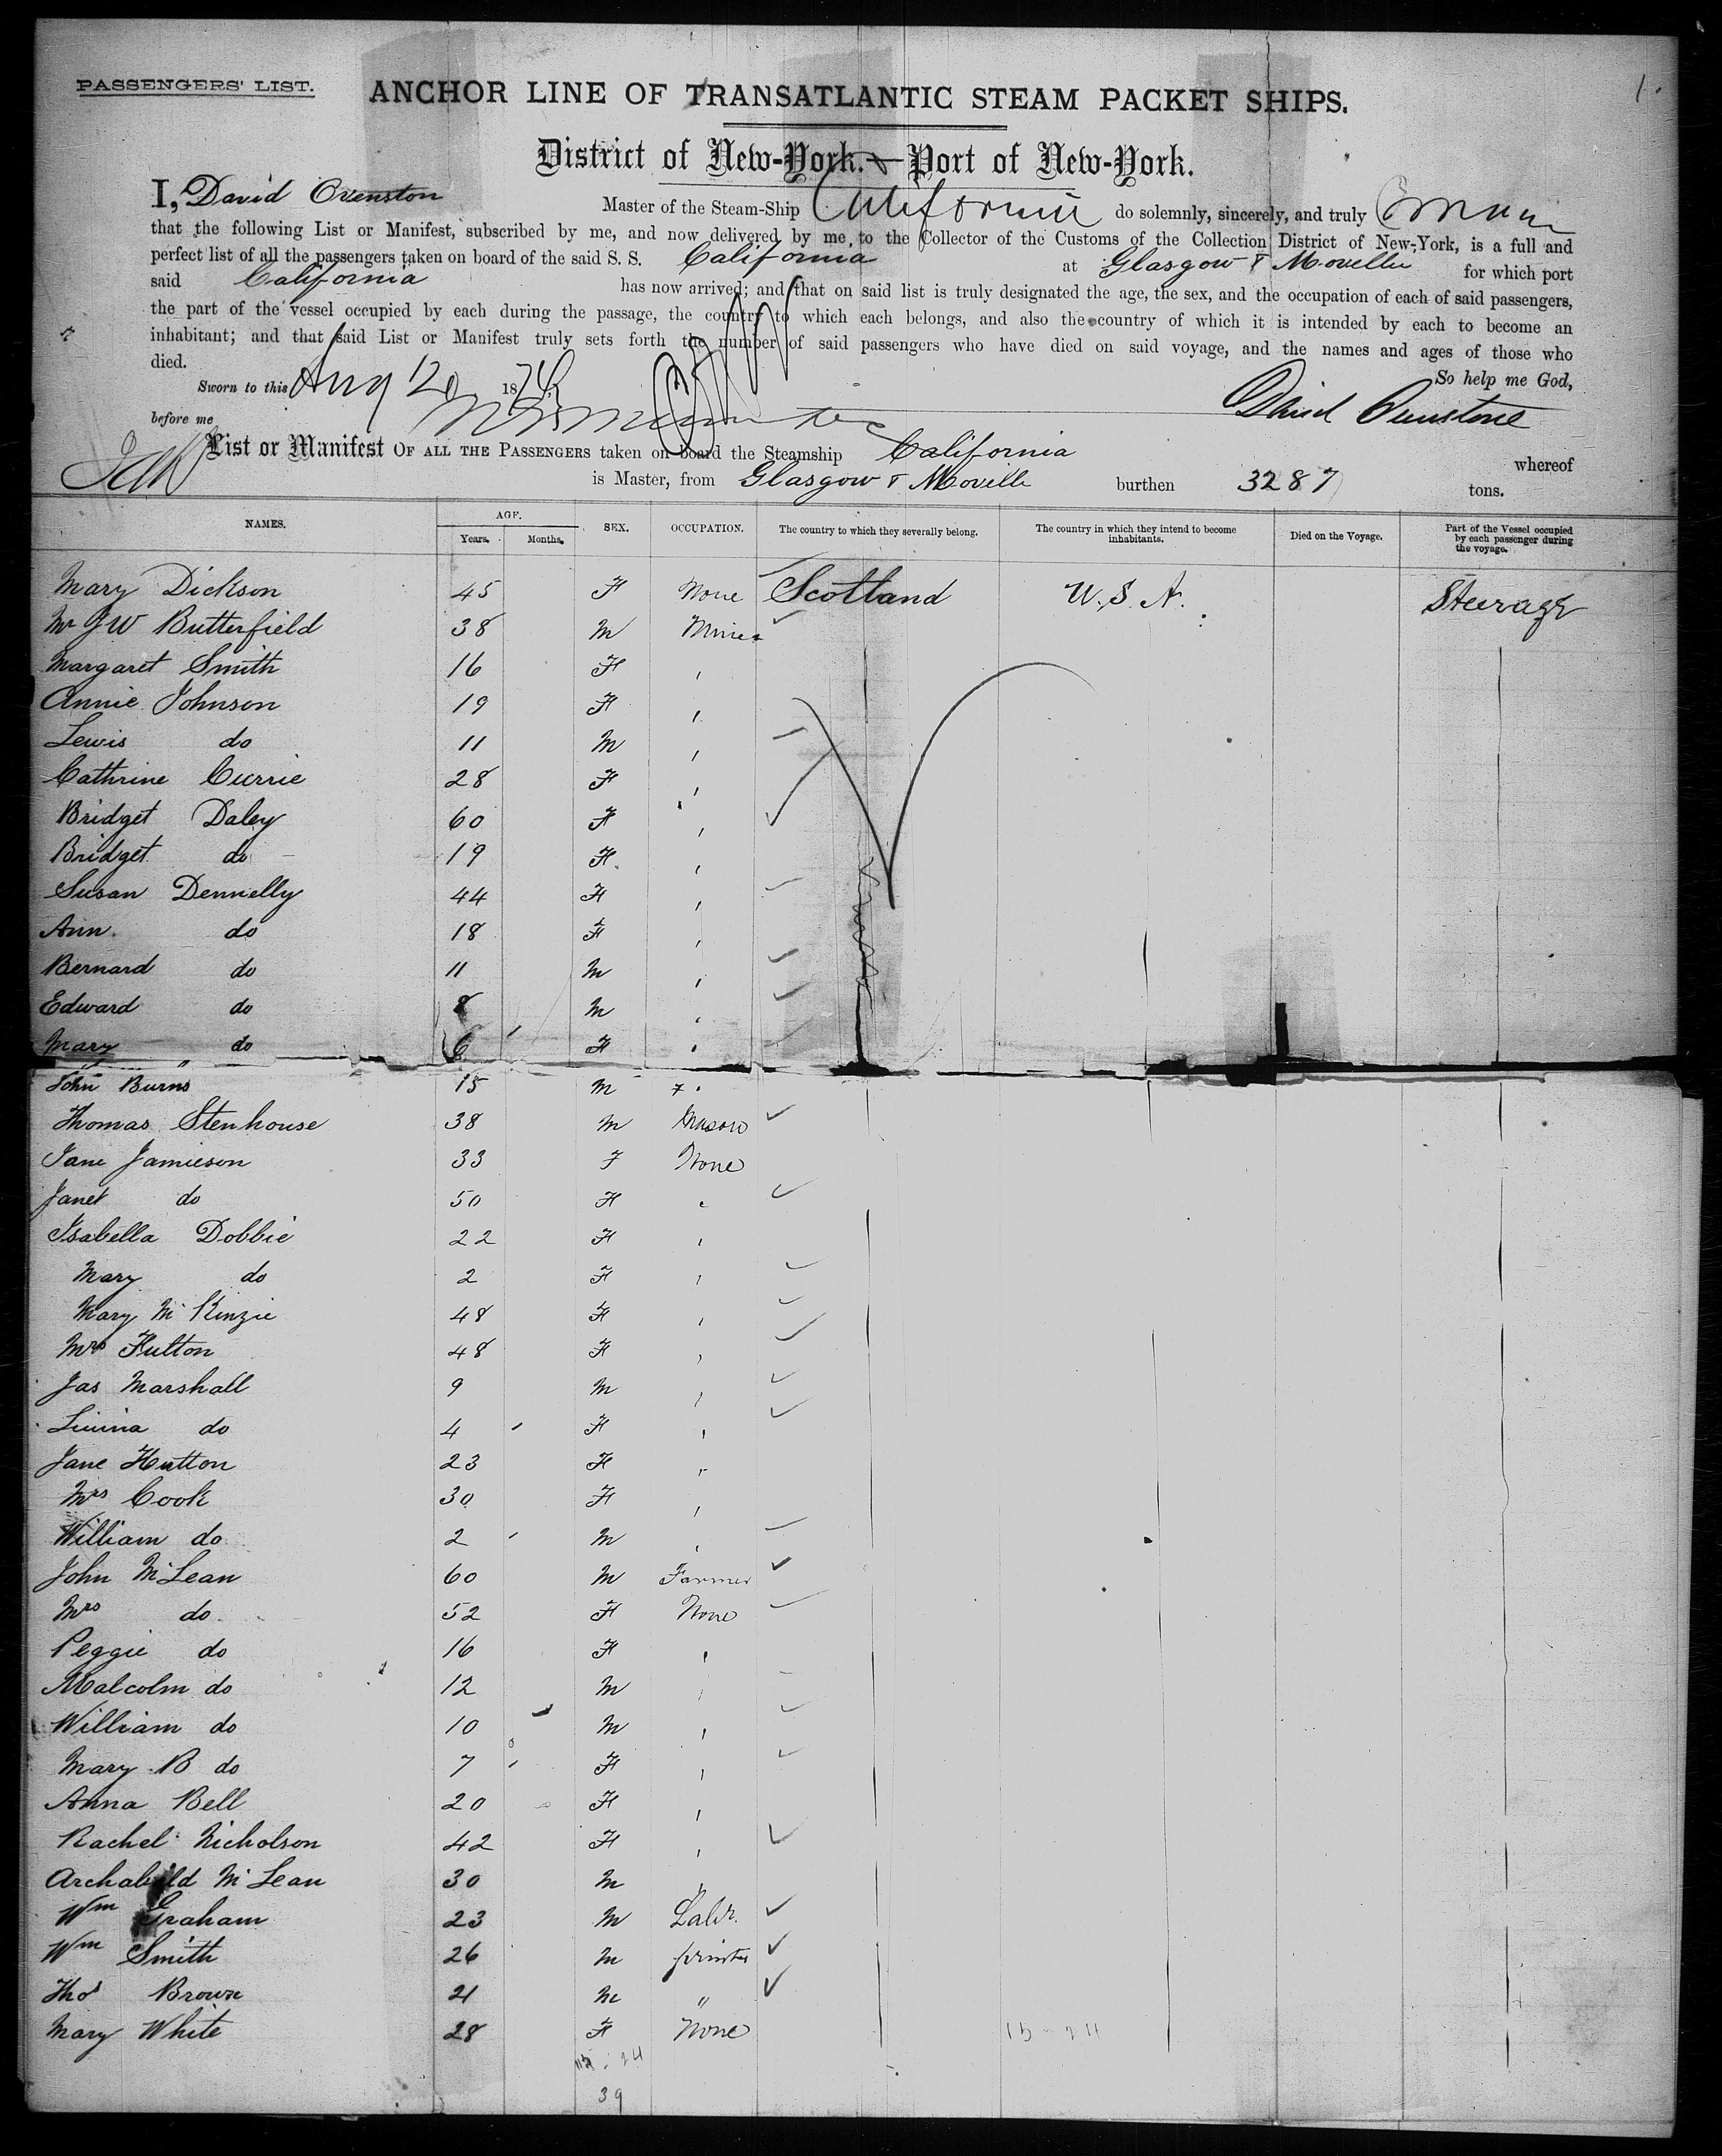 PASSENGERS' LIST.
1.
ANCHOR LINE OF TRANSATLANTIC STEAM PACKET SHIPS.
District of New-York.—Port of New-York.
I, David Ovenston Master of the Steam-Ship California do solemnly, sincerely, and truly
that the following List or Manifest, subscribed by me, and now delivered by me, to the Collector of the Customs of the Collection District of New-York, is a full and
perfect list of all the passengers taken on board of the said S. S. California at Glasgow & Moville for which port
said California has now arrived; and that on said list is truly designated the age, the sex, and the occupation of each of said passengers,
the part of the vessel occupied by each during the passage, the country to which each belongs, and also the country of which it is intended by each to become an
inhabitant; and that said List or Manifest truly sets forth the number of said passengers who have died on said voyage, and the names and ages of those who
died.
So help me God,
Sworn to this Aug 12 1874
David Ovenstone
before me
List or Manifest OF ALL THE PASSENGERS taken on board the Steamship California whereof
is Master, from Glasgow & Moville burthen 3287 tons.
NAMES. AGE. Years. Months. SEX. OCCUPATION. The country to which they severally belong. The country in which they intend to become inhabitants. Died on the Voyage. Part of the Vessel occupied by each passenger during the voyage.
Mary Dickson 45 F None Scotland U.S.A. Steerage
Mr JW Butterfield 38 M Miner
Margaret Smith 16 F "
Annie Johnson 19 F "
Lewis do 11 M "
Cathrine Currie 28 F "
Bridget Daley 60 F "
Bridget do 19 F "
Susan Dennelly 44 F "
Ann do 18 F "
Bernard do 11 M "
Edward do 8 M "
Mary do 6 F "
John Burns 15 M "
Thomas Stenhouse 38 M Mason
Jane Jamieson 33 F None
Janet do 50 F "
Isabella Dobbie 22 F "
Mary do 2 F "
Mary McKinzie 48 F "
Mrs Fulton 48 F "
Jas Marshall 9 M "
do 4 F "
Jane Hutton 23 F "
Mrs Cook 30 F "
William do 2 M "
John McLean 60 M Farmer
Mrs do 52 F None
Peggie do 16 F "
Malcolm do 12 M "
William do 10 M "
Mary B do 7 F "
Anna Bell 20 F "
Rachel Nicholson 42 F "
Archabald McLean 30 M "
Wm Graham 23 M Labr.
Wm Smith 26 M printer
Thos Brown 21 M "
Mary White 28 F None
15 24
39